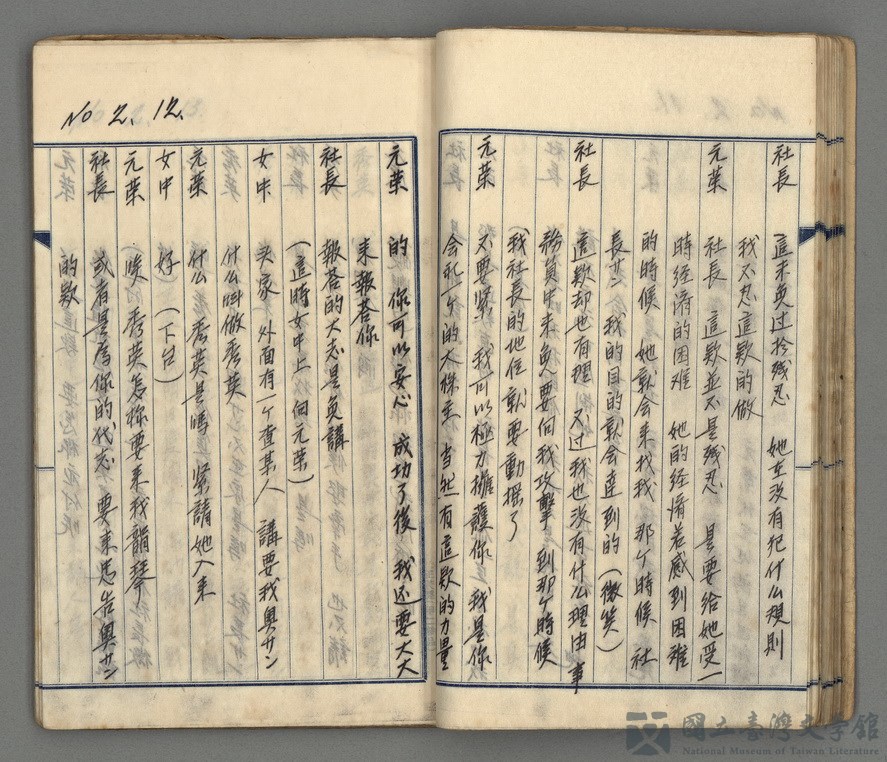 社長　這未免过於残忍　她全没有犯什么規則
我不忍這欵的做
元葉　社長　這欵並不是残忍　是要給她受一
時経済的困难　她的経済若感到困难
的時候　她就会来找我　那个時候　社
長サン　我的目的就会達到的（微笑）
社長　這欵却也有理　不过我也没有什么理由　事
務員中未免要向我攻擊　到那个時候
我社長的地位　就要動揺了
元葉　不要緊　我可以極力擁護你　我是你
会社一个的大株主　当然有這欵的力量
No 2. 12.
元葉　的　你可以安心　成功了後　我还要大大
来報荅你
社長　報荅的大志是免講
（這時女中上　元葉）
女中　头家　外面有一个查某人　講要我奥サン
什么叫做秀英
元葉　什么　秀英是嗎　緊請她入来
女中　好　（下台）
元葉　唉　秀英怎様要来找韻琴
社長　或者是為你的代志　要来忠告奥サン
的欵
國立臺灣文學館
National Museum of Taiwan Literature